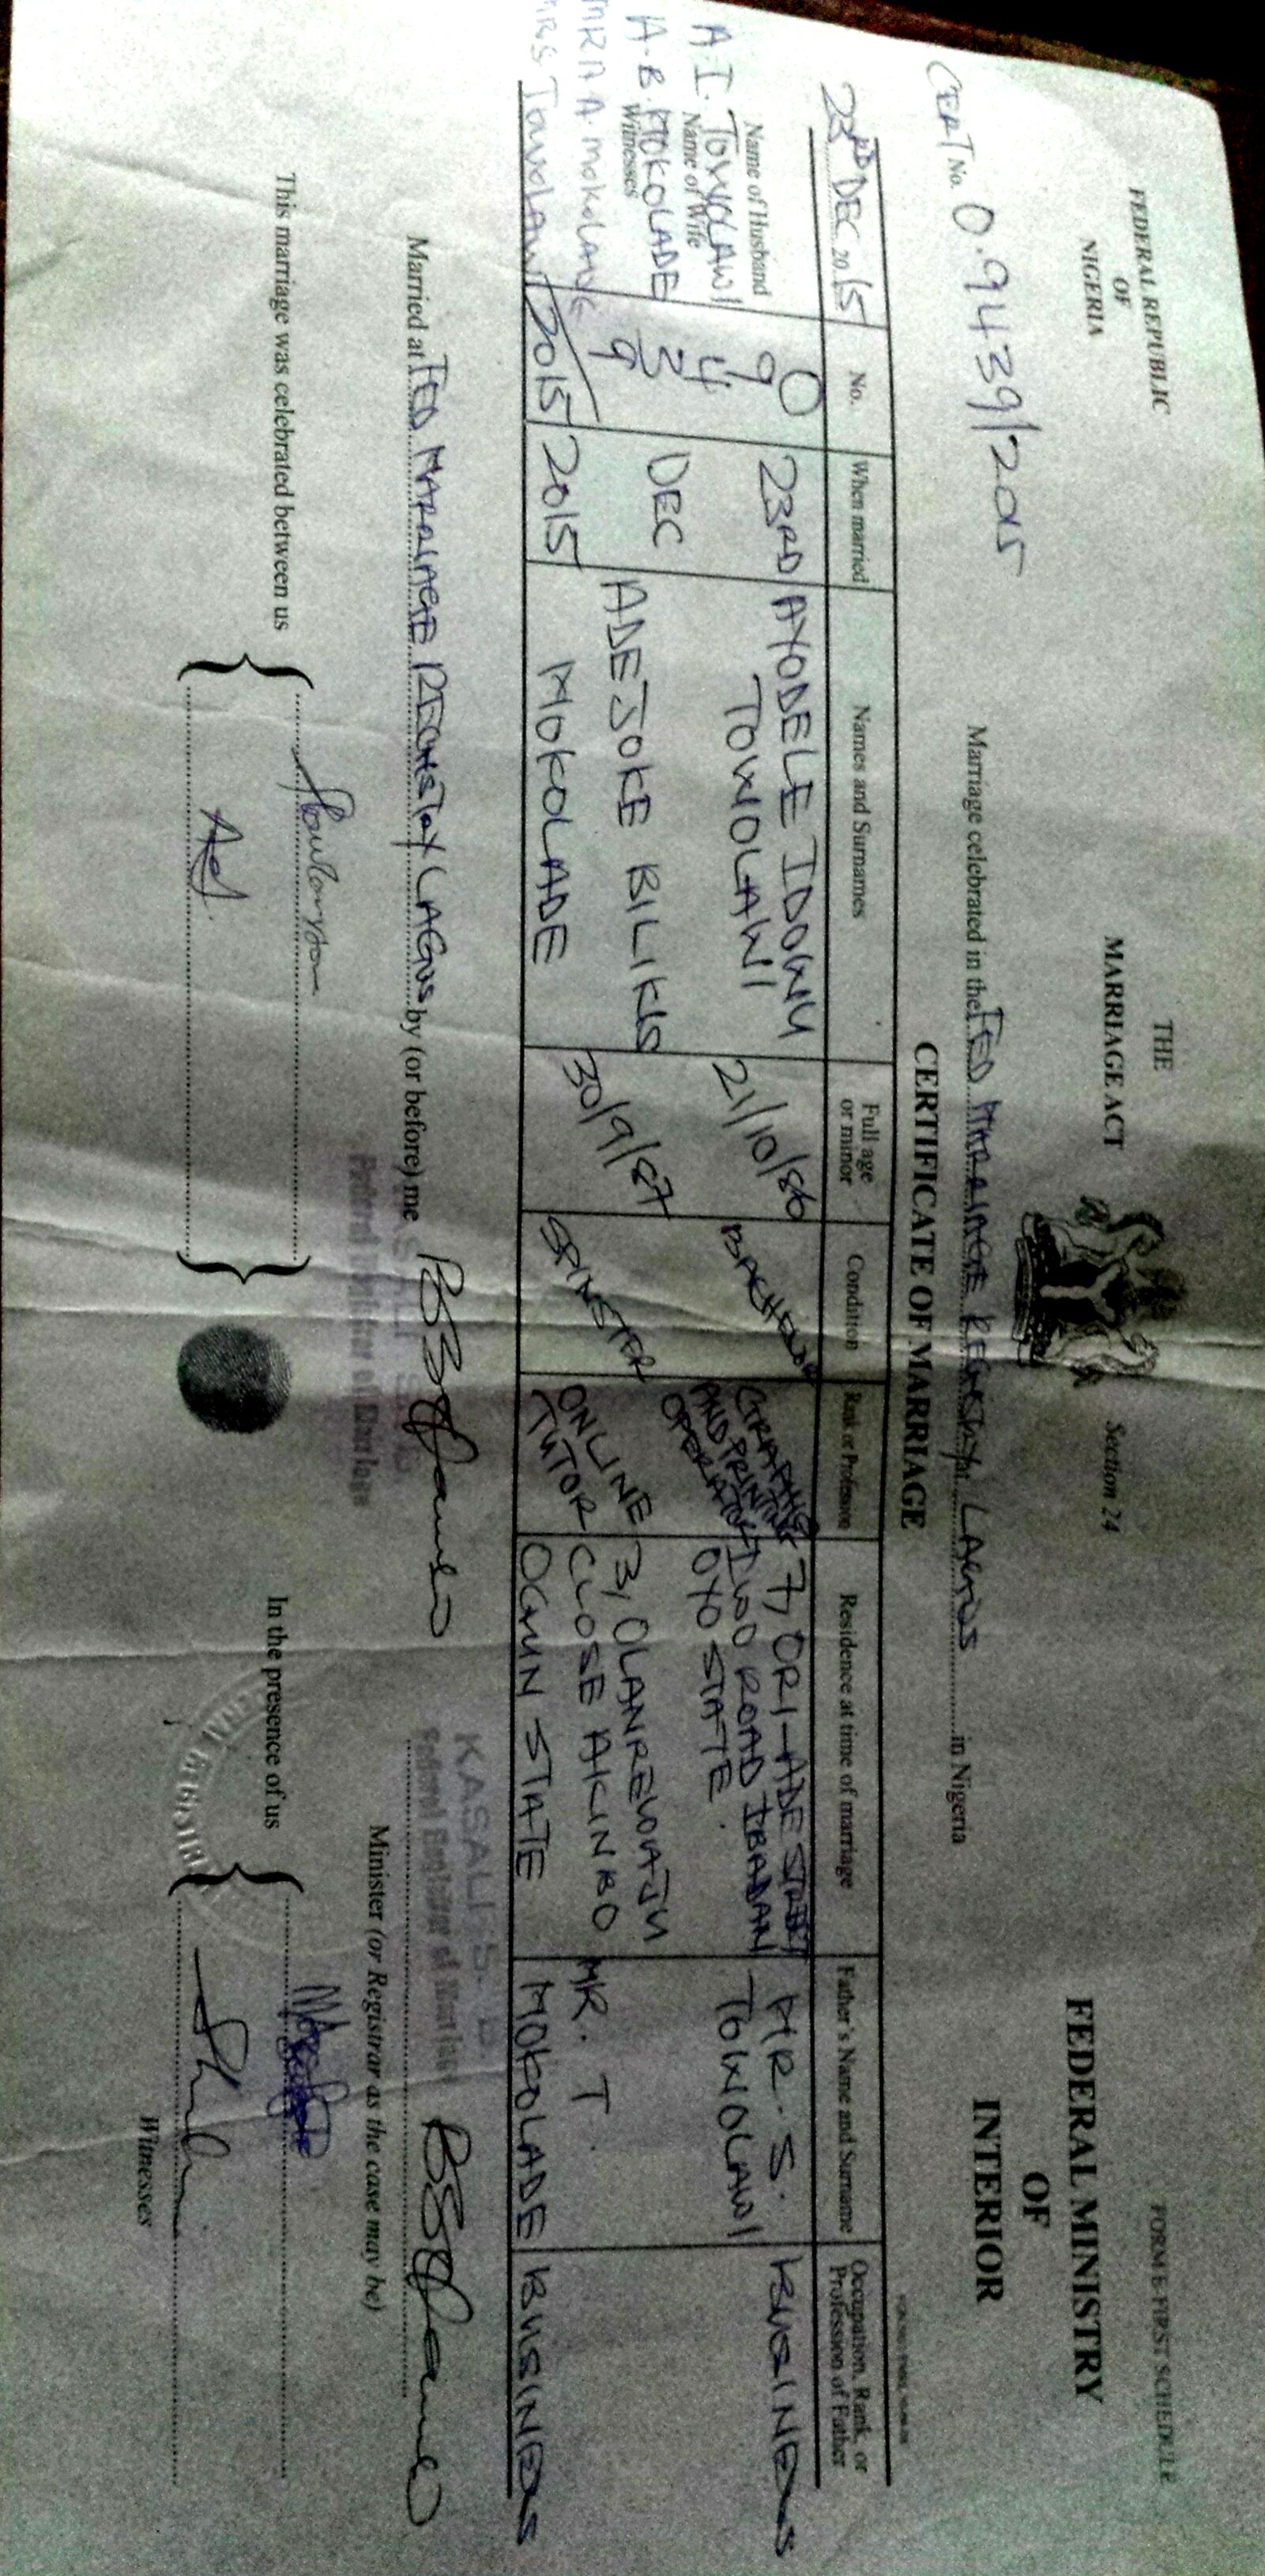 FORM E FIRST SCHEDULE
FEDERAL REPUBLIC
OF
NIGERIA
THE
MARRIAGE ACT
Section 24
FEDERAL MINISTRY
OF
INTERIOR
CERT No. 0.9439/2015
Marriage celebrated in the FED MARAIAGE REGISTRY at LAGOS in Nigeria
CERTIFICATE OF MARRIAGE
23RD DEC 2015
No.
When married
Names and Surnames
Full age
or minor
Condition
Rank or Profession
Residence at time of marriage
Father's Name and Surname
Occupation, Rank, or
Profession of Father
Name of Husband
A. I. TOWOLAWI
Name of Wife
A. B. MOKOLADE
Witnesses
A. MOKOLADE
MRS TOWOLAWI
0
9
4
3
9
/2015
23RD
DEC
2015
AYODELE IDOWU
TOWOLAWI
ADEJOKE BILIKIS
MOKOLADE
21/10/86
30/9/87
BACHELOR
SPINSTER
GRAPHIC
AND PRINTING
OPERATOR
ONLINE
TUTOR
7, ORI-ADE STREET
IWO ROAD IBADAN
OYO STATE
3, OLANREWAJU
CLOSE AKINBO
OGUN STATE
MR. S.
TOWOLAWI
MR. T
MOKOLADE
BUSINESS
BUSINESS
Married at FED MARAIAGE REGISTRY LAGOS by (or before) me
KASALI S. B.
Federal Registrar of Marriage
Minister (or Registrar as the case may be)
This marriage was celebrated between us
In the presence of us
Witnesses